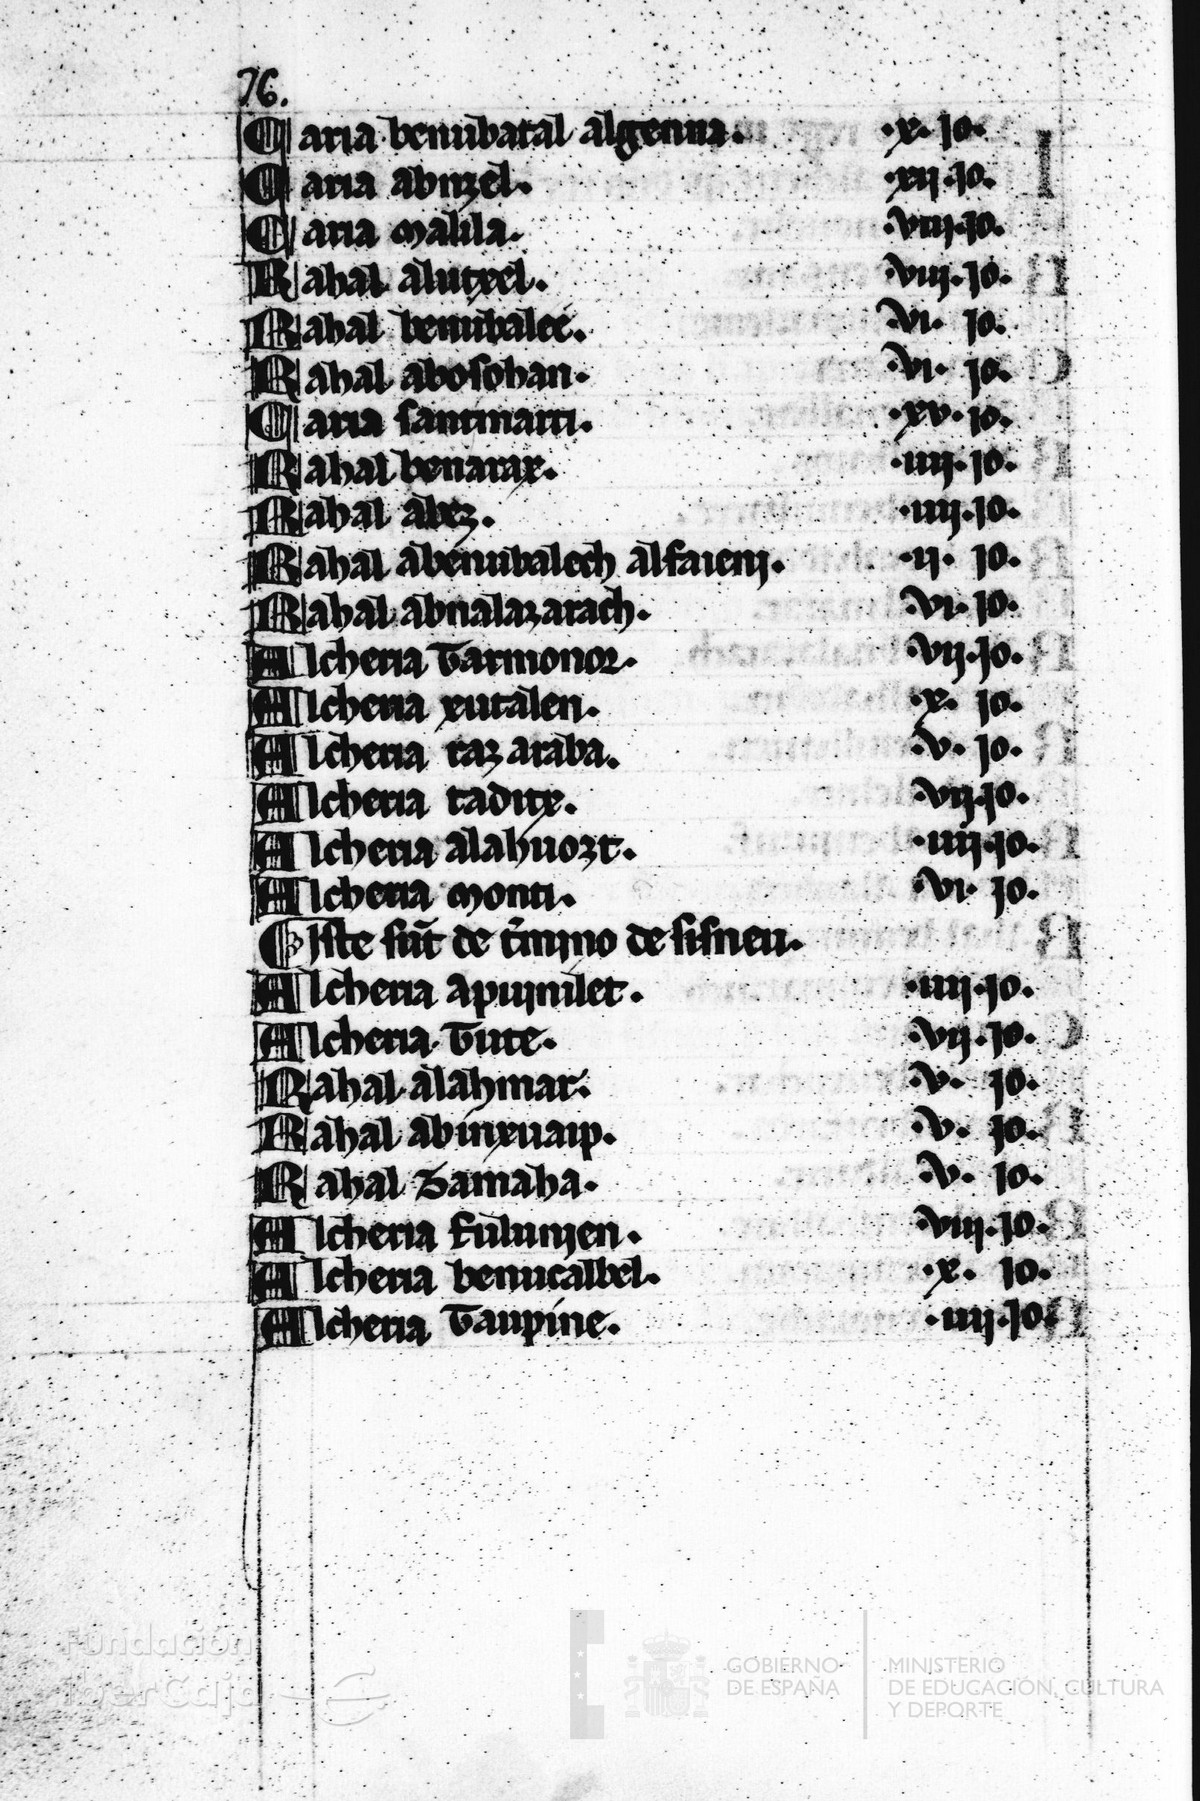 76.
Caria benibatal algenna. .x. jo.
Caria abnzel. .xij. jo.
Caria malila. .viij. jo.
Rahal alutxel. .viij. jo.
Rahal benibalec. .vi. jo.
Rahal abosohan. .vi. jo.
Caria santmarti. .xv. jo.
Rahal benarax. .iiij. jo.
Rahal abez. .iiij. jo.
Rahal abenibalech alfaieni. .ij. jo.
Rahal abnalazarach. .vi. jo.
Alcheria Tarmonor. .vij. jo.
Alcheria xutalen. .x. jo.
Alcheria raz araba. .v. jo.
Alcheria raditx. .vij. jo.
Alcheria alahuozt. .iiij. jo.
Alcheria monti. .vi. jo.
Iste sūt de t̄mino de sisneu.
Alcheria apuinilet. .iiij. jo.
Alcheria Tite. .vij. jo.
Rahal alahmar. .v. jo.
Rahal abinxuaip. .v. jo.
Rahal Zamaha. .v. jo.
Alcheria fulunjen. .viij. jo.
Alcheria benicalbel. .x. jo.
Alcheria Taupine. .iiij. jo.
Fundación
iberCaja
GOBIERNO
DE ESPAÑA
MINISTERIO
DE EDUCACIÓN, CULTURA
Y DEPORTE